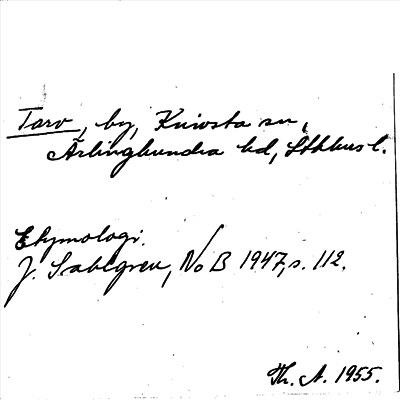 Tarv, by, Knivsta sn,
Ärlinghundra hd, Sthlms l.
Etymologi.
J. Sahlgren, NoB 1947, s. 112.
Th. A. 1955.